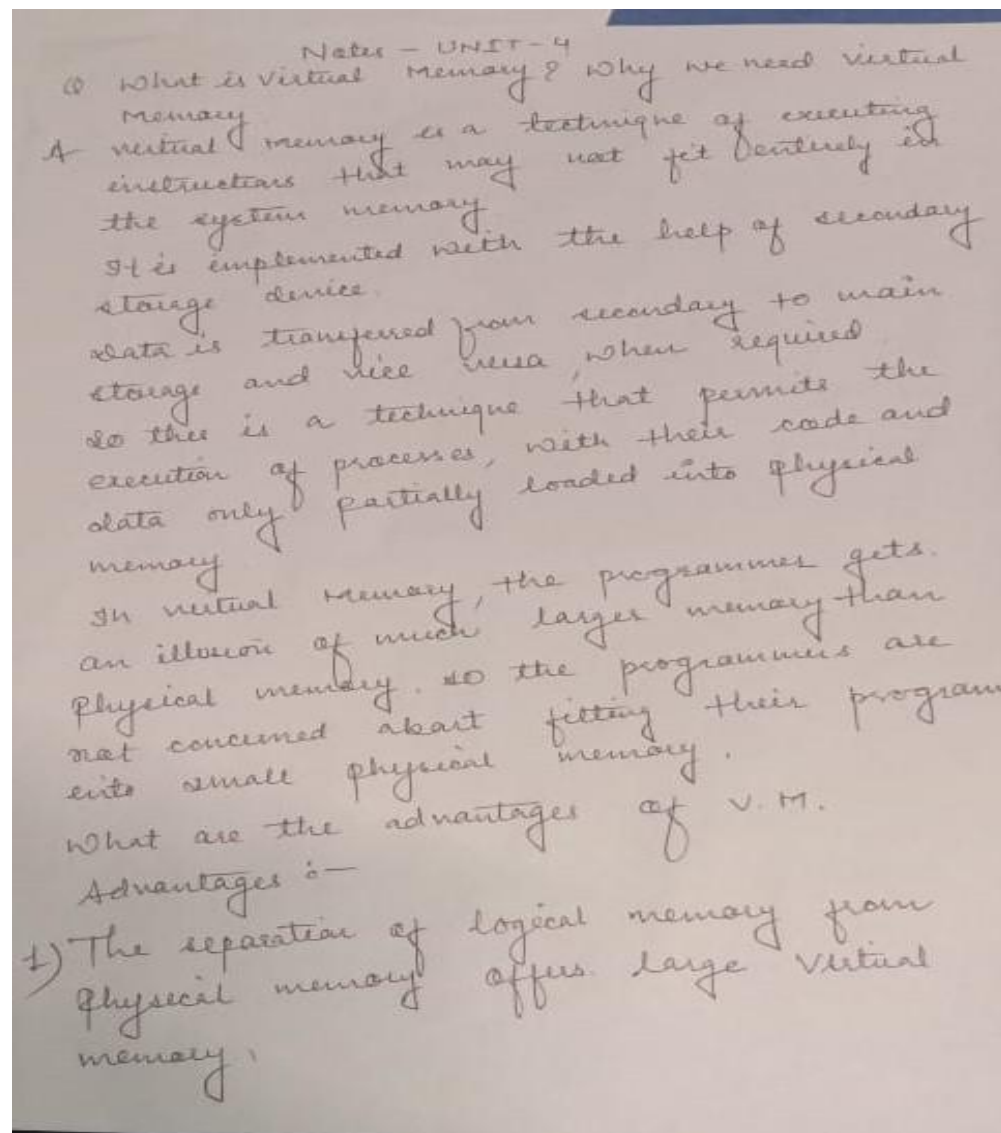 Notes - UNIT-4
Q What is Virtual Memory? Why we need virtual
Memory
A virtual memory is a technique of executing
instructions that may not fit entirely in
the system memory
It is implemented with the help of secondary
storage device.
Data is transferred from secondary to main
storage and vice versa, when required
So this is a technique that permits the
execution of processes, with their code and
data only partially loaded into physical
memory
In virtual memory, the programmer gets
an illusion of much larger memory than
Physical memory. So the programmers are
not concerned about fitting their program
into small physical memory.
What are the advantages of V.M.
Advantages :-
1) The separation of logical memory from
physical memory offers large virtual
memory.